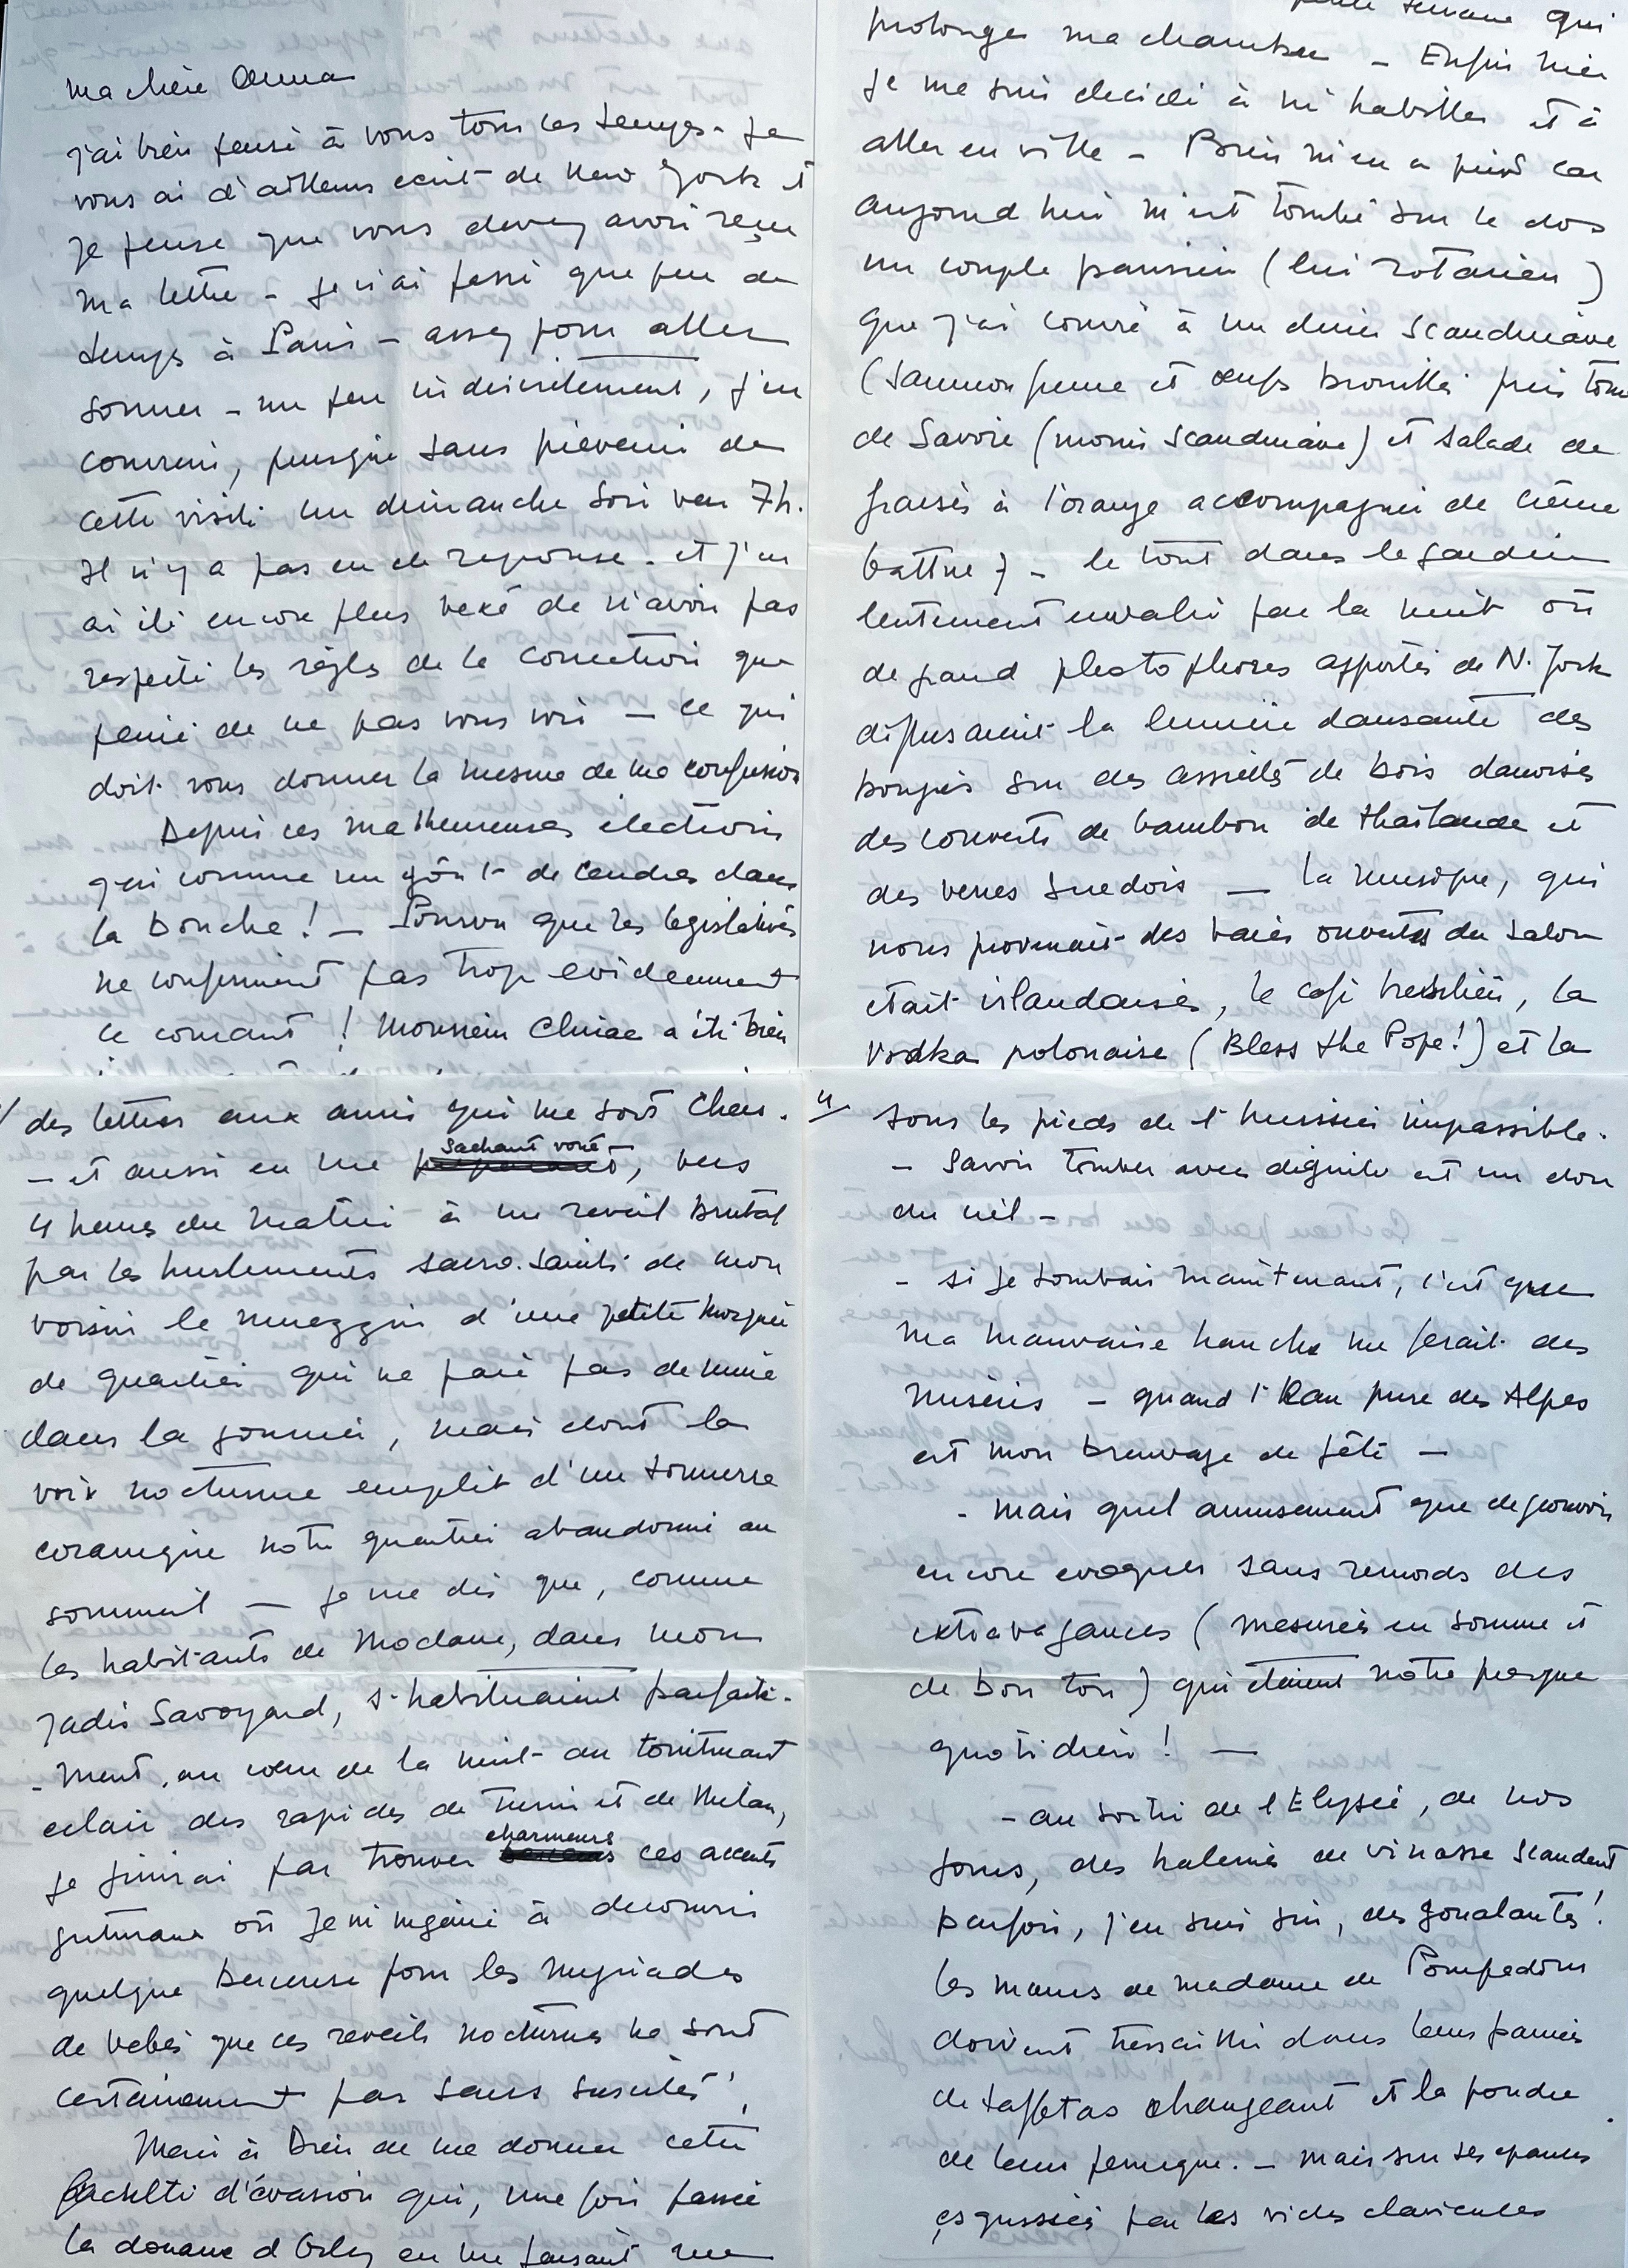 Ma chère Anna
j'ai bien pensé à vous tous ces temps. Je
vous ai d'ailleurs écrit de New York et
je pense que vous devez avoir reçu
ma lettre - je n'ai passé que peu de
temps à Paris - assez pour aller
sonner - un peu indiscrètement, j'en
conviens, puisque sans prévenir de
cette visite un dimanche soir vers 7h.
Il n'y a pas eu de réponse. et j'en
ai été encore plus vexé de n'avoir pas
respecté les règles de la correction que
peiné de ne pas vous voir - ce qui
doit vous donner la mesure de ma confusion
Depuis ces malheureuses élections
j'ai comme un goût de cendres dans
la bouche ! - Pourvu que les législatives
ne confirment pas trop évidemment
ce courant ! Monsieur Chirac a été bien
qui
prolonge ma chambre - Enfin hier
je me suis décidé à m'habiller et à
aller en ville - Bien m'en a pris car
aujourd'hui m'est tombé sur le dos
un couple parisien (lui rotarien)
que j'ai convié à un dîner scandinave
(saumon fumé et œufs brouillés puis tome
de Savoie (moins scandinave) et salade de
fraises à l'orange accompagnée de crème
battue) - le tout dans le jardin
lentement envahi par la nuit où
de grands photophores apportés de N. York
diffusaient la lumière dansante des
bougies sur des assiettes de bois danoises
des couverts de bambou de Thaïlande et
des verres suédois - la musique, qui
nous provenait des baies ouvertes du salon
était irlandaise, le café brésilien, la
vodka polonaise (Bless the Pope!) et la
des lettres aux amis qui me sont chers.
- et aussi en me sachant voué, vers
4 heures du matin à un réveil brutal
par les hurlements sacro-saints de mon
voisin le muezzin d'une petite mosquée
de quartier qui ne paie pas de mine
dans la journée, mais dont la
voix nocturne emplit d'un tonnerre
coranique notre quartier abandonné au
sommeil - Je me dis que, comme
les habitants de Modane, dans mon
jadis Savoyard, s'habituaient parfaite-
-ment, au cœur de la nuit au tonitruant
éclair des rapides de Turin et de Milan,
je finirai par trouver charmeurs ces accents
gutturaux où je m'ingénie à découvrir
quelque berceuse pour les myriades
de bébés que ces réveils nocturnes ne sont
certainement pas sans susciter !
Merci à Dieu de me donner cette
faculté d'évasion qui, une fois passée
la douane d'Orly en me faisant
4/ sous les pieds de l'huissier impassible.
- Savoir tomber avec dignité est un don
du ciel -
- si je tombais maintenant, c'est que
ma mauvaise hanche me ferait des
misères - quand l'Eau pure des Alpes
est mon breuvage de fête -
- Mais quel amusement que de pouvoir
encore évoquer sans remords des
extravagances (mesurées en somme et
de bon ton) qui étaient notre presque
quotidien ! -
- au sortir de l'Elysée, de nos
jours, des haleines de vinasse scandent
parfois, j'en suis sûr, des goualantes !
Les manes de madame de Pompadour
doivent tressaillir dans leurs paniers
de taffetas changeant et la poudre
de leur perruque. - mais sur ses épaules
esquissées par les vides clavicules